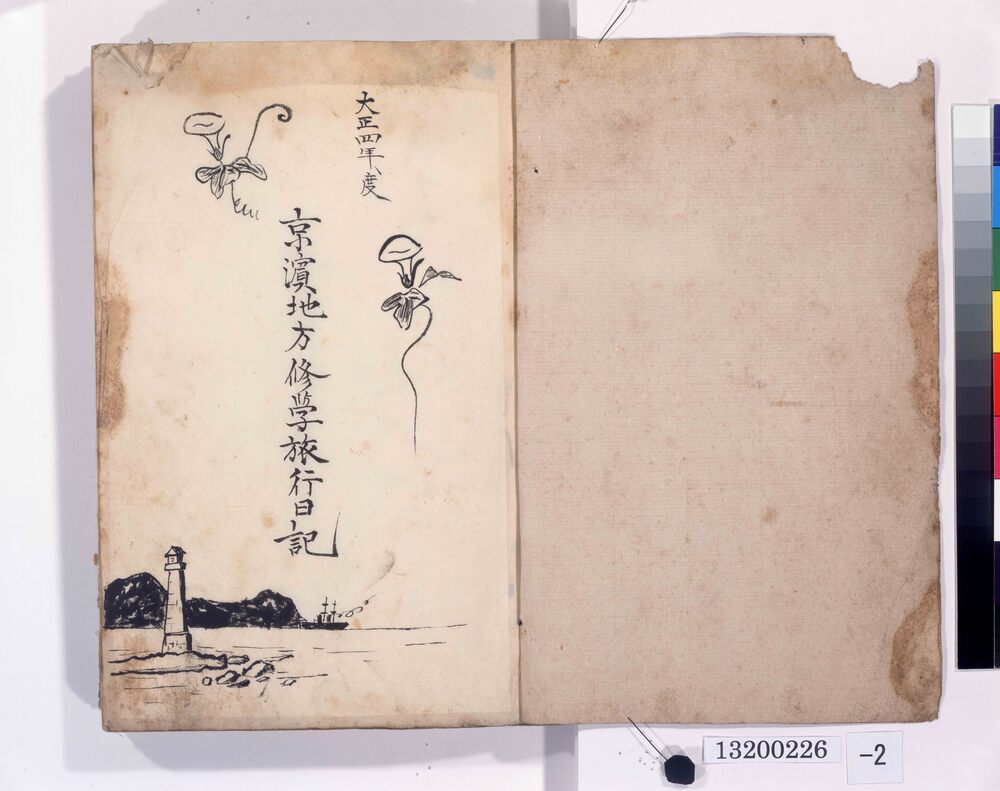 大正四年度
京濱地方修学旅行日記
13200226
-2